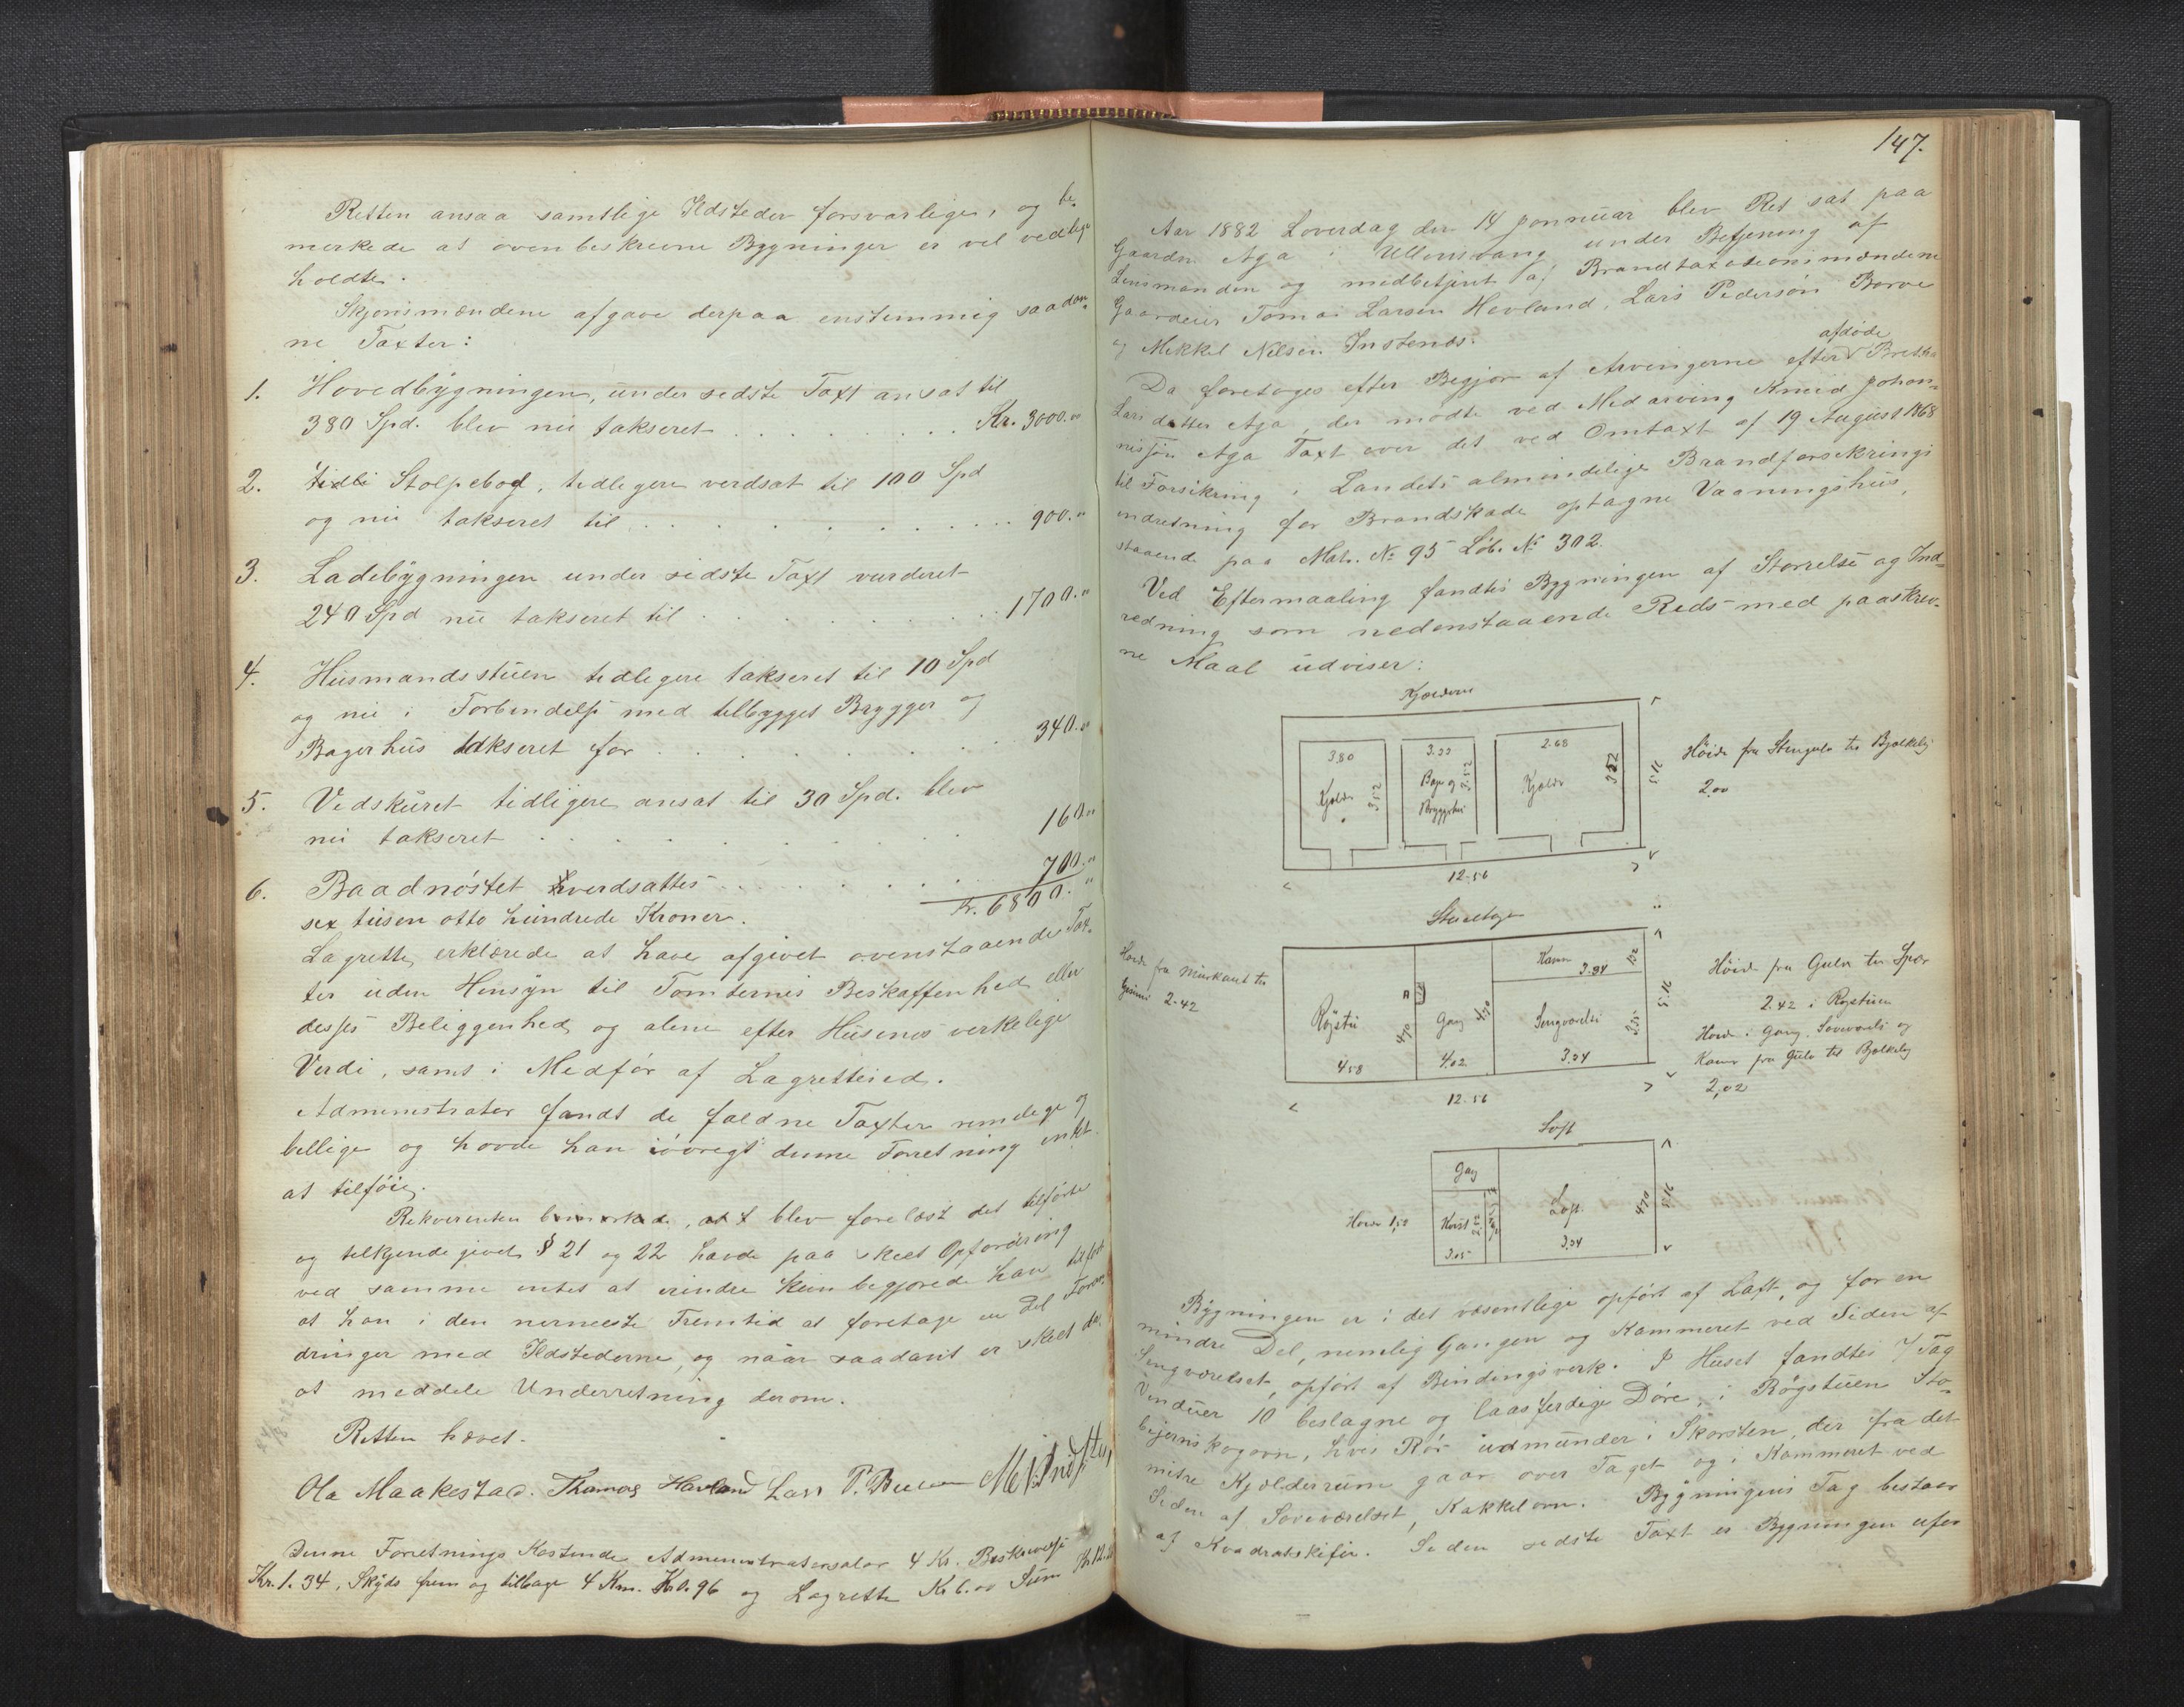 Retten ansaa samtlige Ildsteder forsvarlige, og be-
merkede at ovenbeskrevne Bygninger er vel vedlige
holdte.
Skjønsmændene afgave derpaa enstemmig saadan-
ne Taxter:
1. Hovedbygningen, under sidste Taxt ansat til
380 Spd. blev nu takseret . . . . . . Kr. 3000.00
2. Stolpebod, tidligere verdsat til 100 Spd
og nu takseret til . . . . . . . . 900.„
3. Ladebygningen under sidste Taxt vurderet
240 Spd nu takseret til . . . . . . . 1700.„
4. Husmandsstuen tidligere takseret til 10 Spd
og nu i Forbindelse med tilbygget Brygger og
Bagerhus takseret for . . . . . . . 340.„
5. Vedskuret tidligere ansat til 30 Spd. blev
nu takseret . . . . . . . 160„
6. Baadnøstet verdsattes . . . . . . . 700.„
Kr. 6800.„
sex tusen otto hundrede Kroner.
Lagrette erklærede at have afgivet ovenstaaende Tax-
ter uden Hensyn til Tomternes Beskaffenhed eller
desses Beliggenhed, og alene efter Husenes verkelige
Verdi, samt i Medfør af Lagretteed.
Administrator fandt de faldne Taxter rimelige og
billige og havde han iøvrigt denne Forretning intet
at tilføie.
Rekverenten bemerkede, at blev forelæst det tilførte
og tilkjendegivet § 21 og 22 havde paa skeet Opfordring
ved samme intet at erindre kun begjærede han tilført
at han i den nermeste Fremtid at foretage en Del Foran-
dringer med Ildstederne, og naar saadant er skeet da
at meddele Underretning derom.
Retten hævet.
Ola Maakestad. Thomas Havland Lars P. Børve M N Instenæs
Denne Forretnings Kostende Administratorsalar 4 Kr. Beskrivelse
Kr. 1.34, Skyds frem og tilbage 4 Km. Kr 0.96 og Lagrette Kr 6.00 Sum Kr 12.
147.
Aar 1882 Løverdag den 14 Jannuar blev Ret sat paa
Gaarden Aga i Ullensvang under Betjening af
Lensmanden og medbetjent af Brandtaxationsmændene
Gaardeier Tomas Larsen Hovland, Lars Pedersøn Børve
og Mikkel Nilsen Instenæs.
Da foretoges efter Begjær af Arvingerne efter afdøde Britha
Larsdatter Aga, der mødte ved Medarving Knud Johan-
nisson Aga Taxt over det ved Omtaxt af 19 August 1868
til Forsikring i Landets almindelige Brandforsikrings
indretning for Brandskade optagne Vaaningshus,
staaende paa Mat. № 95 Løb. № 302.
Ved Eftermaaling fandtes Bygningen af Størrelse og Ind-
redning som nedenstaaende Rids med paaskrev-
ne Maal udviser:
Kjælderne
3.80 Kjælder 3.52
3.33 Bage og Bryggerhus 3.52
2.68 Kjælder 3.52
5.16
12.56
Høide fra Stengulv til Bjælkelag
2.00
Stueetage
Høide fra Murkant til
Gesims 2.42
Røgstue 4.70 4.58
Gang 4.70 4.02
Kamer 3.34 1.32
Sengværelse 3.35 3.34
5.16
12.56
Høide fra Gulv til Spær
2.42 i Røgstuen
Høide i Gang. Soveværelse og
Kamer fra Gulv til Bjælkelag
2,02
Loft
Gang
Kvist 2.12 3.05
Loft 4.70 3.34
5.16
Høide 1,52
Bygningen er i det væsentlige opført af Laft, og for en
mindre Del, nemlig Gangen og Kammeret ved Siden af
Sengværelset, opført af Bindingsverk. I Huset fandtes 7 Fag
Vinduer 10 beslagne og laasferdige Døre, i Røgstuen Stø-
bejerns kogovn, hvis Rør udmunder i Skorsten, der fra det
mitre Kjælderrum gaar over Taget og i Kammeret ved
Siden af Soveværelset, Kakkelovn. Bygningens Tag bestaar
af Kvadratskifer. Siden sidste Taxt er Bygningen ufor